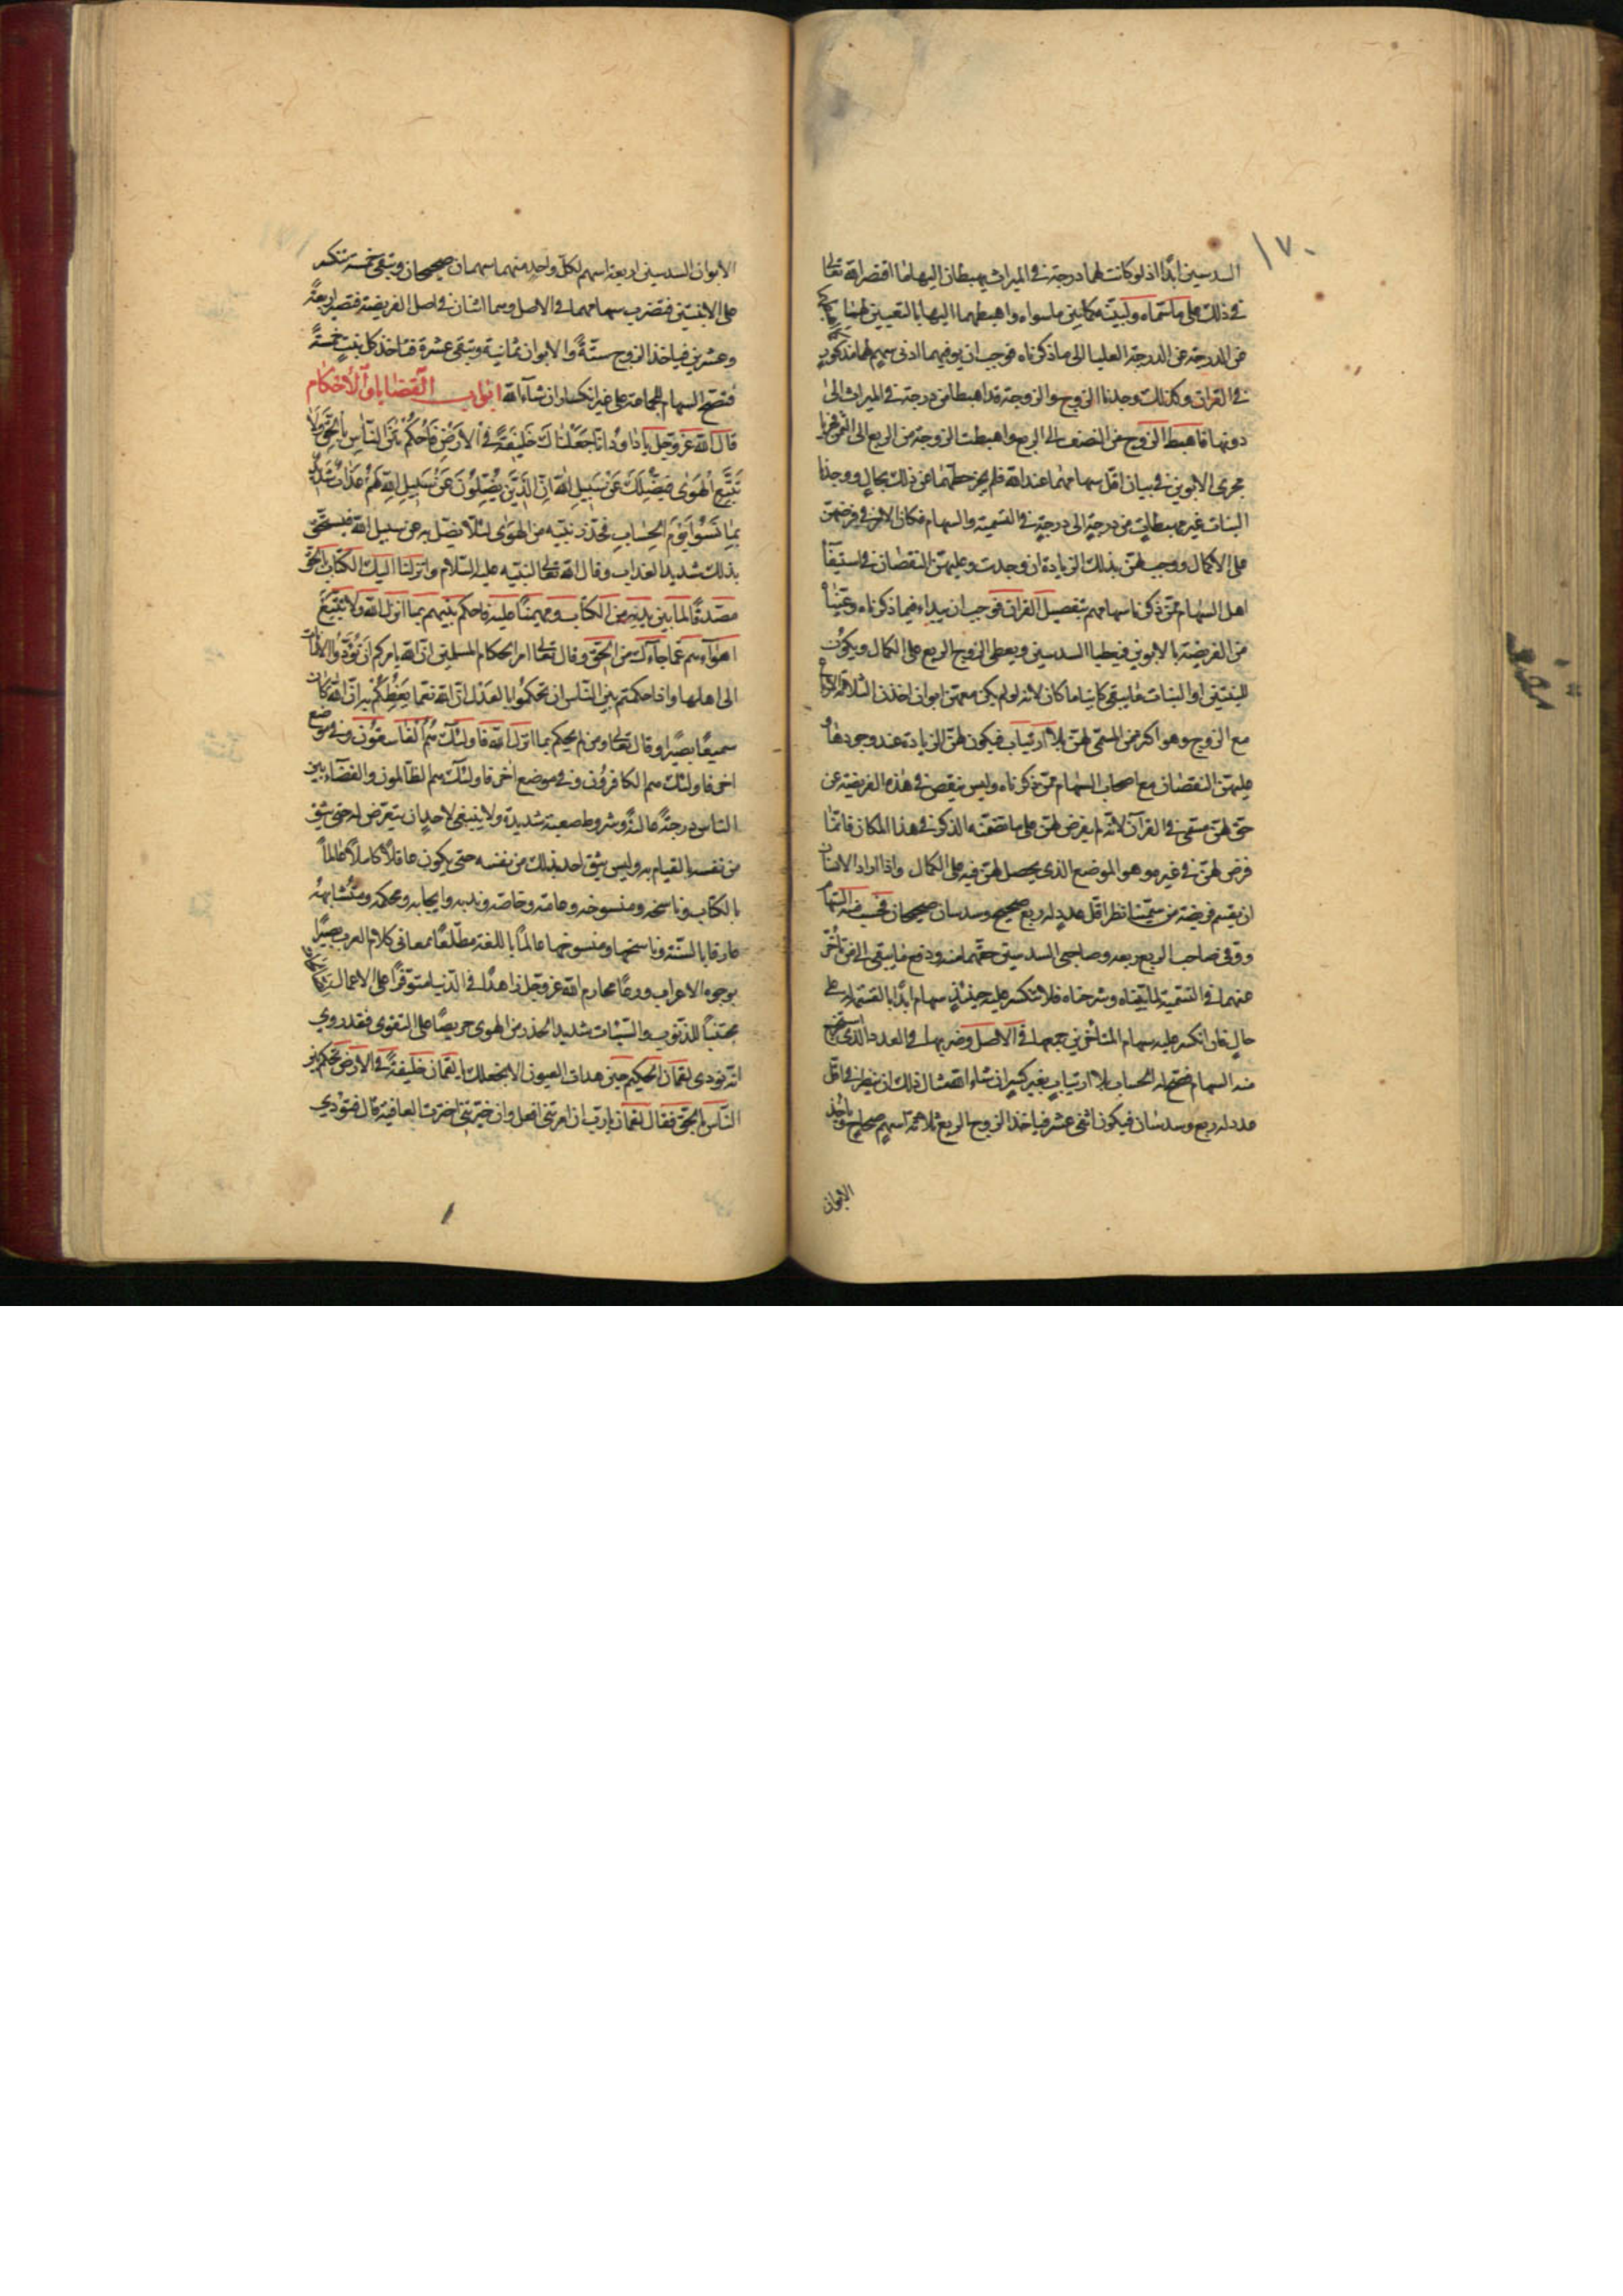 ١٧٠
السدسين ابدًا اذ لو كانت لهما درجة في الميراث يهبطان اليها لما اقتصر الله تعالى
في ذلك على ما سماه ولبينه كما بين ما سواه واهبطهما اليها بالتعيين لهما
من الدرجة عن الدرجة العليا الى ما ذكرناه فوجب ان يوفيهما ادنى سهم لهما مذكور
في القران وكذلك وجدنا الزوج والزوجة قد اهبطا من درجة في الميراث الى
دونها فاهبط الزوج من النصف الى الربع واهبطت الزوجة من الربع الى الثمن فجريا
مجرى الابوين في بيان اقل سهامهما عند الله فلم يجز حطهما عن ذلك بحال ووجدنا
البنات غير مهبطات من درجة الى درجة في التسمية والسهام فكان الامر في فرضهن
على الاكمال ووجب لهن بذلك الزيادة ان وجدت وعليهن النقصان في استيفاء
اهل السهام ممن ذكرنا سهامهم بتفصيل القران فوجب ان يبداء فيما ذكرناه وعيناه
من الفريضة بالابوين فيعطيا السدسين ويعطى الزوج الربع على الكمال ويكون
للبنتين او البنات ما يبقى كائنا ما كان لانه لو لم يكن معهن ابوان اخذن الثلاثة ارباع
مع الزوج وهو اكثر من المسمى لهن بلا ارتياب فيكون لهن الزيادة عند وجودها و
عليهن النقصان مع اصحاب السهام ممن ذكرناه وليس ينقص في هذه الفريضة عن
حق لهن مسمى في القرآن لانه لم يفرض لهن على ما تضمنه الذكر في هذا المكان فانما
فرض لهن في غيره وهو الموضع الذي يحصل لهن فيه على الكمال واذا اراد الانسان
ان يقسم فريضة من سمينا نظر اقل عدد له ربع صحيح وسدسان صحيحان فحسب منه السهام
ووفى صاحب الربع ربعه وصاحبي السدسين حقهما منه ودفع ما يبقى الى من تأخر
عنهما في التسمية لما بيناه وشرحناه فلا تنكسر عليه حينئذ سهام ابدًا بالقسمة له على
حال فان انكسر عليه سهام المتأخرين جمعها في الاصل وضربها في العدد الذي استخرج
منه السهام فتصح له الحساب بلا ارتياب بغير كسر ان شاء الله مثال ذلك ان ينظر في اقل
عدد له ربع وسدسان فيكون اثنى عشر فياخذ الزوج الربع ثلاثة اسهم صحاح وياخذ
الابوان
الابوان السدسين اربعة اسهم لكل واحد منهما سهمان صحيحان ويبقى خمسة تنكسر
على الابنتين فتضرب سهامهما في الاصل وهما اثنان في اصل الفريضة فتصير اربعة
وعشرين فياخذ الزوج ستة والابوان ثمانية وتبقى عشرة فتاخذ كل بنت خمسة
فتصح السهام للجماعة على غير انكسار ان شآء الله ابواب القضايا والاحكام
قال الله عز وجل يا داود انا جعلناك خليفة في الارض فاحكم بين الناس بالحق ولا
تتبع الهوى فيضلك عن سبيل الله ان الذين يضلون عن سبيل الله لهم عذاب شديد
بما نسوا يوم الحساب فحذر نبيه من الهوى لئلا يضل به عن سبيل الله فيستحق
بذلك شديد العذاب وقال الله تعالى لنبيه عليه السلام وانزلنا اليك الكتاب بالحق
مصدقًا لما بين يديه من الكتاب ومهيمنًا عليه فاحكم بينهم بما انزل الله ولا تتبع
اهوآءهم عما جاءك من الحق وقال تعالى امرا لحكام المسلمين ان الله يامركم ان تؤدوا الامانات
الى اهلها واذا حكمتم بين الناس ان تحكموا بالعدل ان الله نعما يعظكم به ان الله كان
سميعًا بصيرًا وقال تعالى ومن لم يحكم بما انزل الله فاولئك هم الفاسقون وفي موضع
اخر فاولئك هم الكافرون وفي موضع اخر فاولئك هم الظالمون والقضاء بين
الناس درجة عالية وشروط صعبة شديدة ولا ينبغي لاحد ان يتعرض له حتى يثق
من نفسه بالقيام به وليس يثق احد بذلك من نفسه حتى يكون عاقلاً كاملاً عالماً
بالكتاب وناسخه ومنسوخه وعامه وخاصه وندبه وايجابه ومحكمه ومتشابهه
عارفا بالسنة وناسخها ومنسوخها عالمًا باللغة مطلعًا بمعاني كلام العرب بصيرًا
بوجوه الاعراب ورعًا عن محارم الله عز وجل زاهدًا في الدنيا متوفرًا على الاعمال
مجتنباً للذنوب والسيئات شديد الحذر من الهوى حريصًا على التقوى فقد روي
انه نودى لقمان الحكيم حين هدات العيون الا نجعلك يا لقمان خليفة في الارض تحكم بين
الناس بالحق فقال لقمان يا رب ان امرتني افعل وان خيرتني اخترت العافية قال فنودي